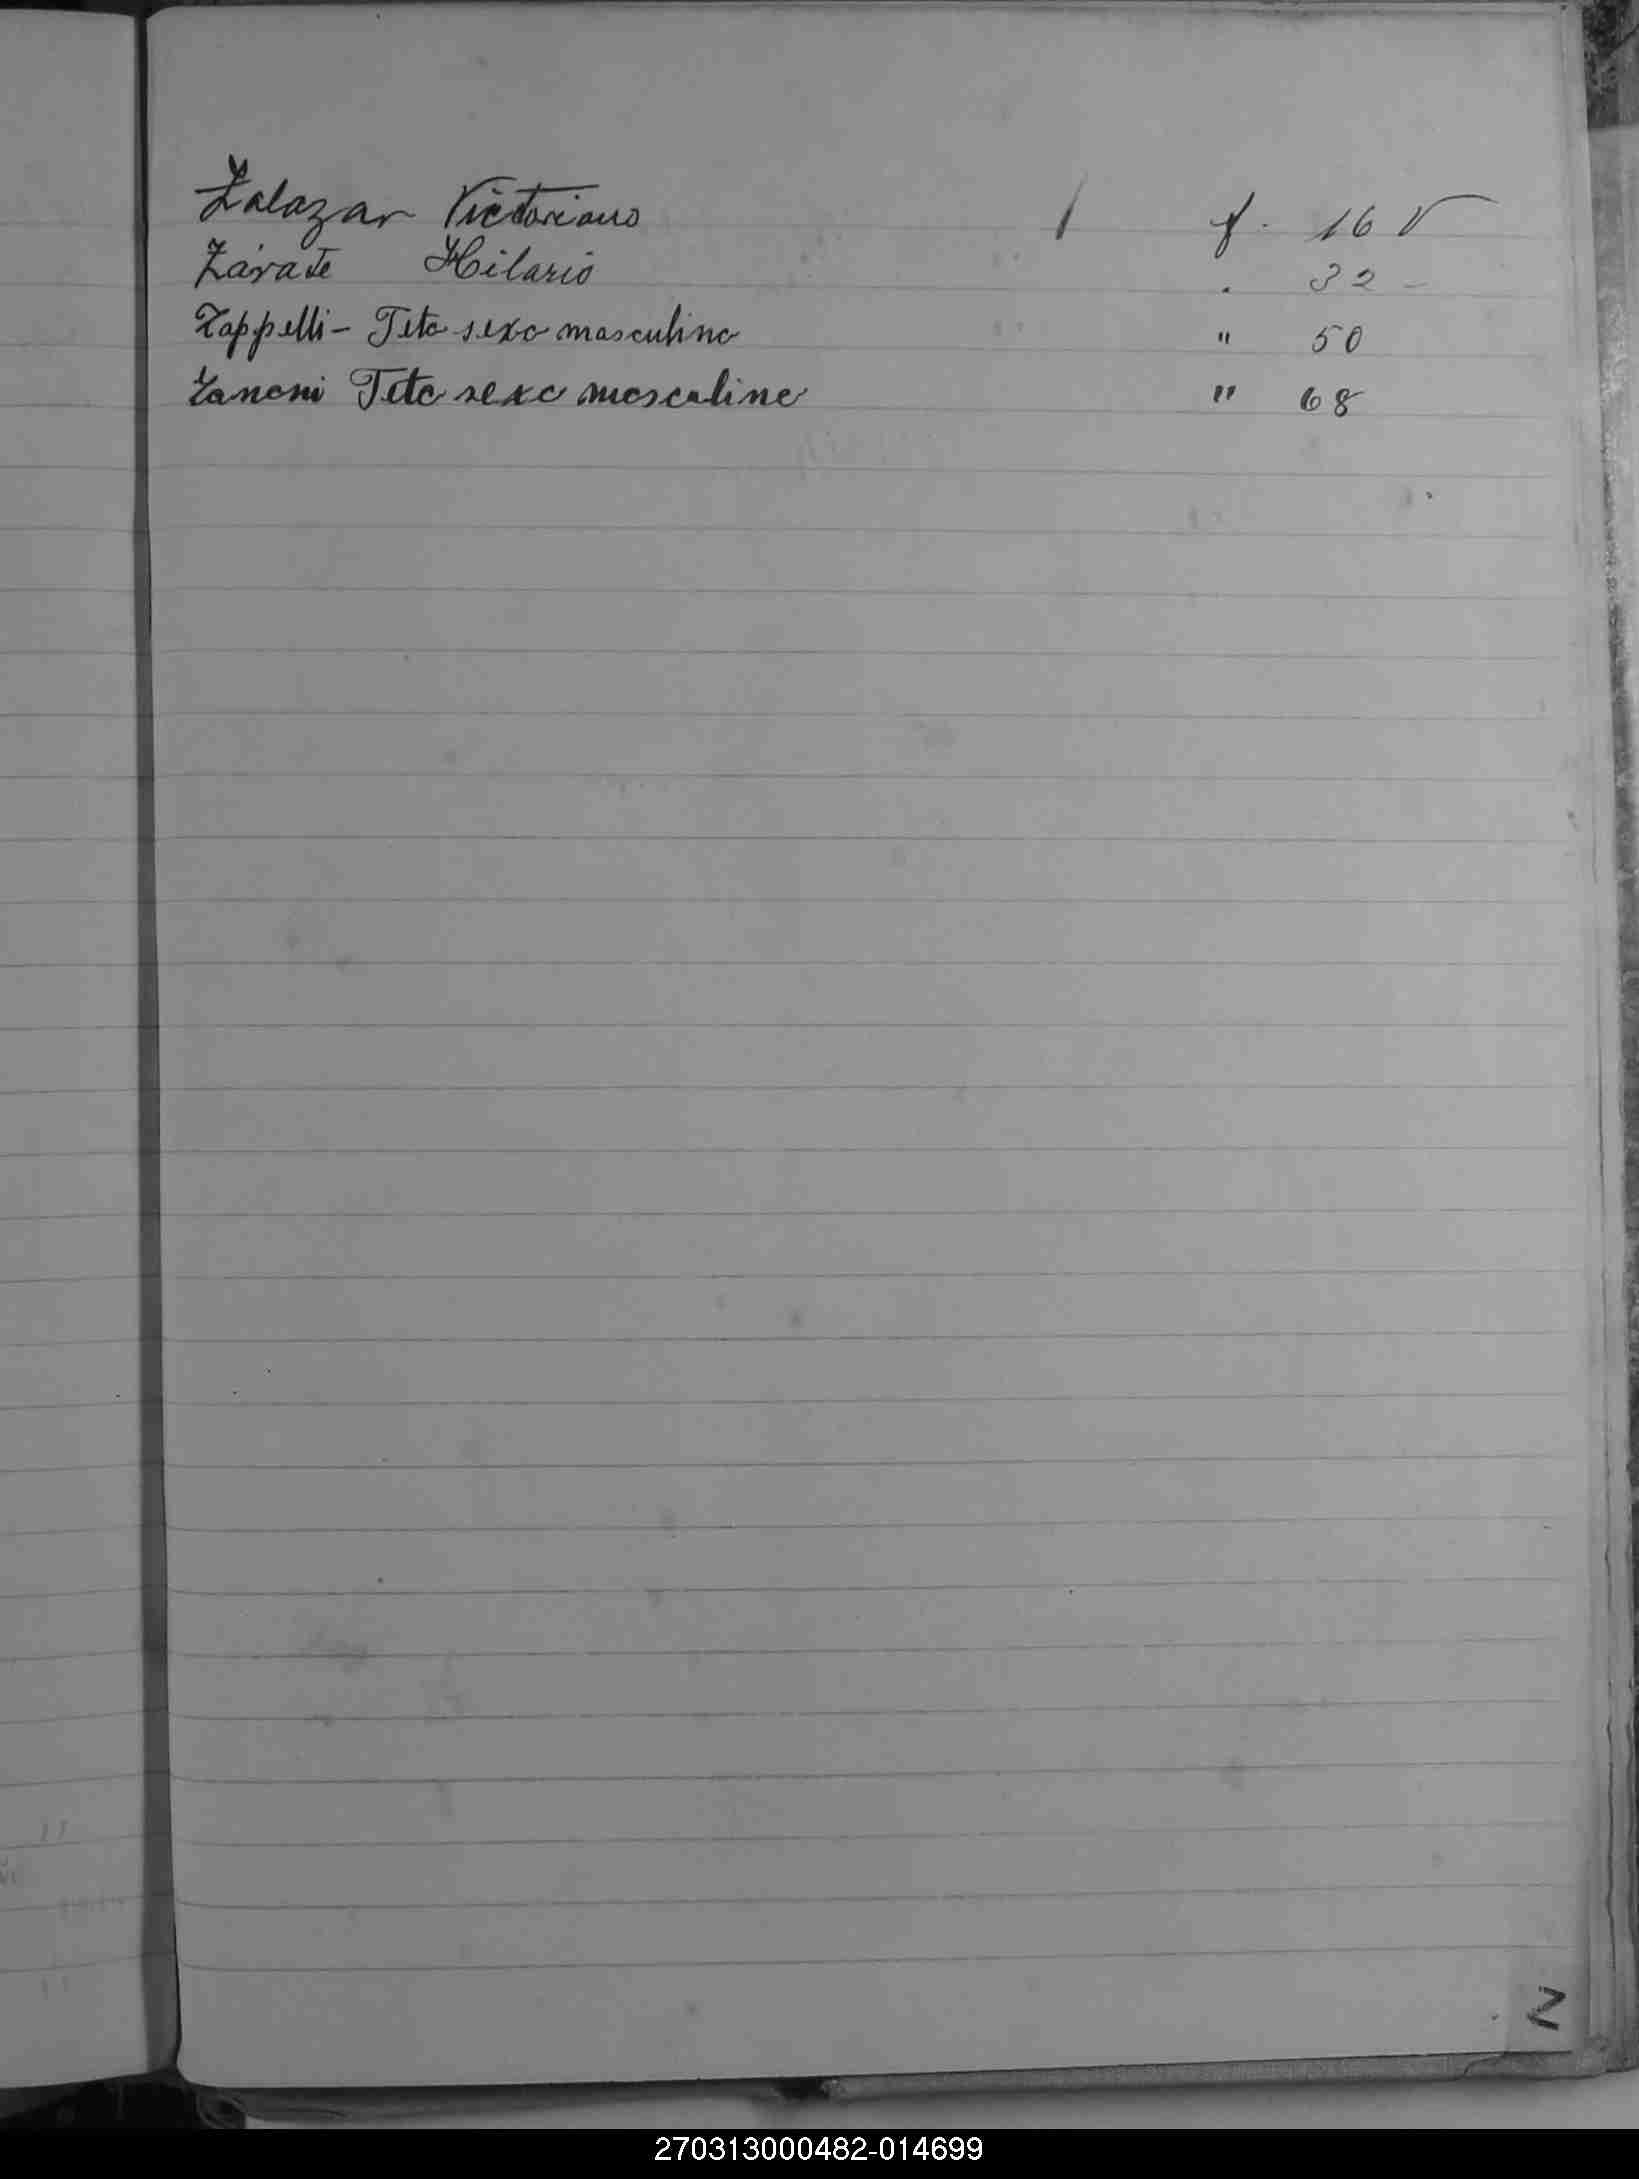 Zalazar Victoriano / f. 16 V
Zárate Hilario . 32 -
Zappelli - Feto sexo masculino " 50
Zanoni Feto sexo masculino " 68
Z
270313000482-014699